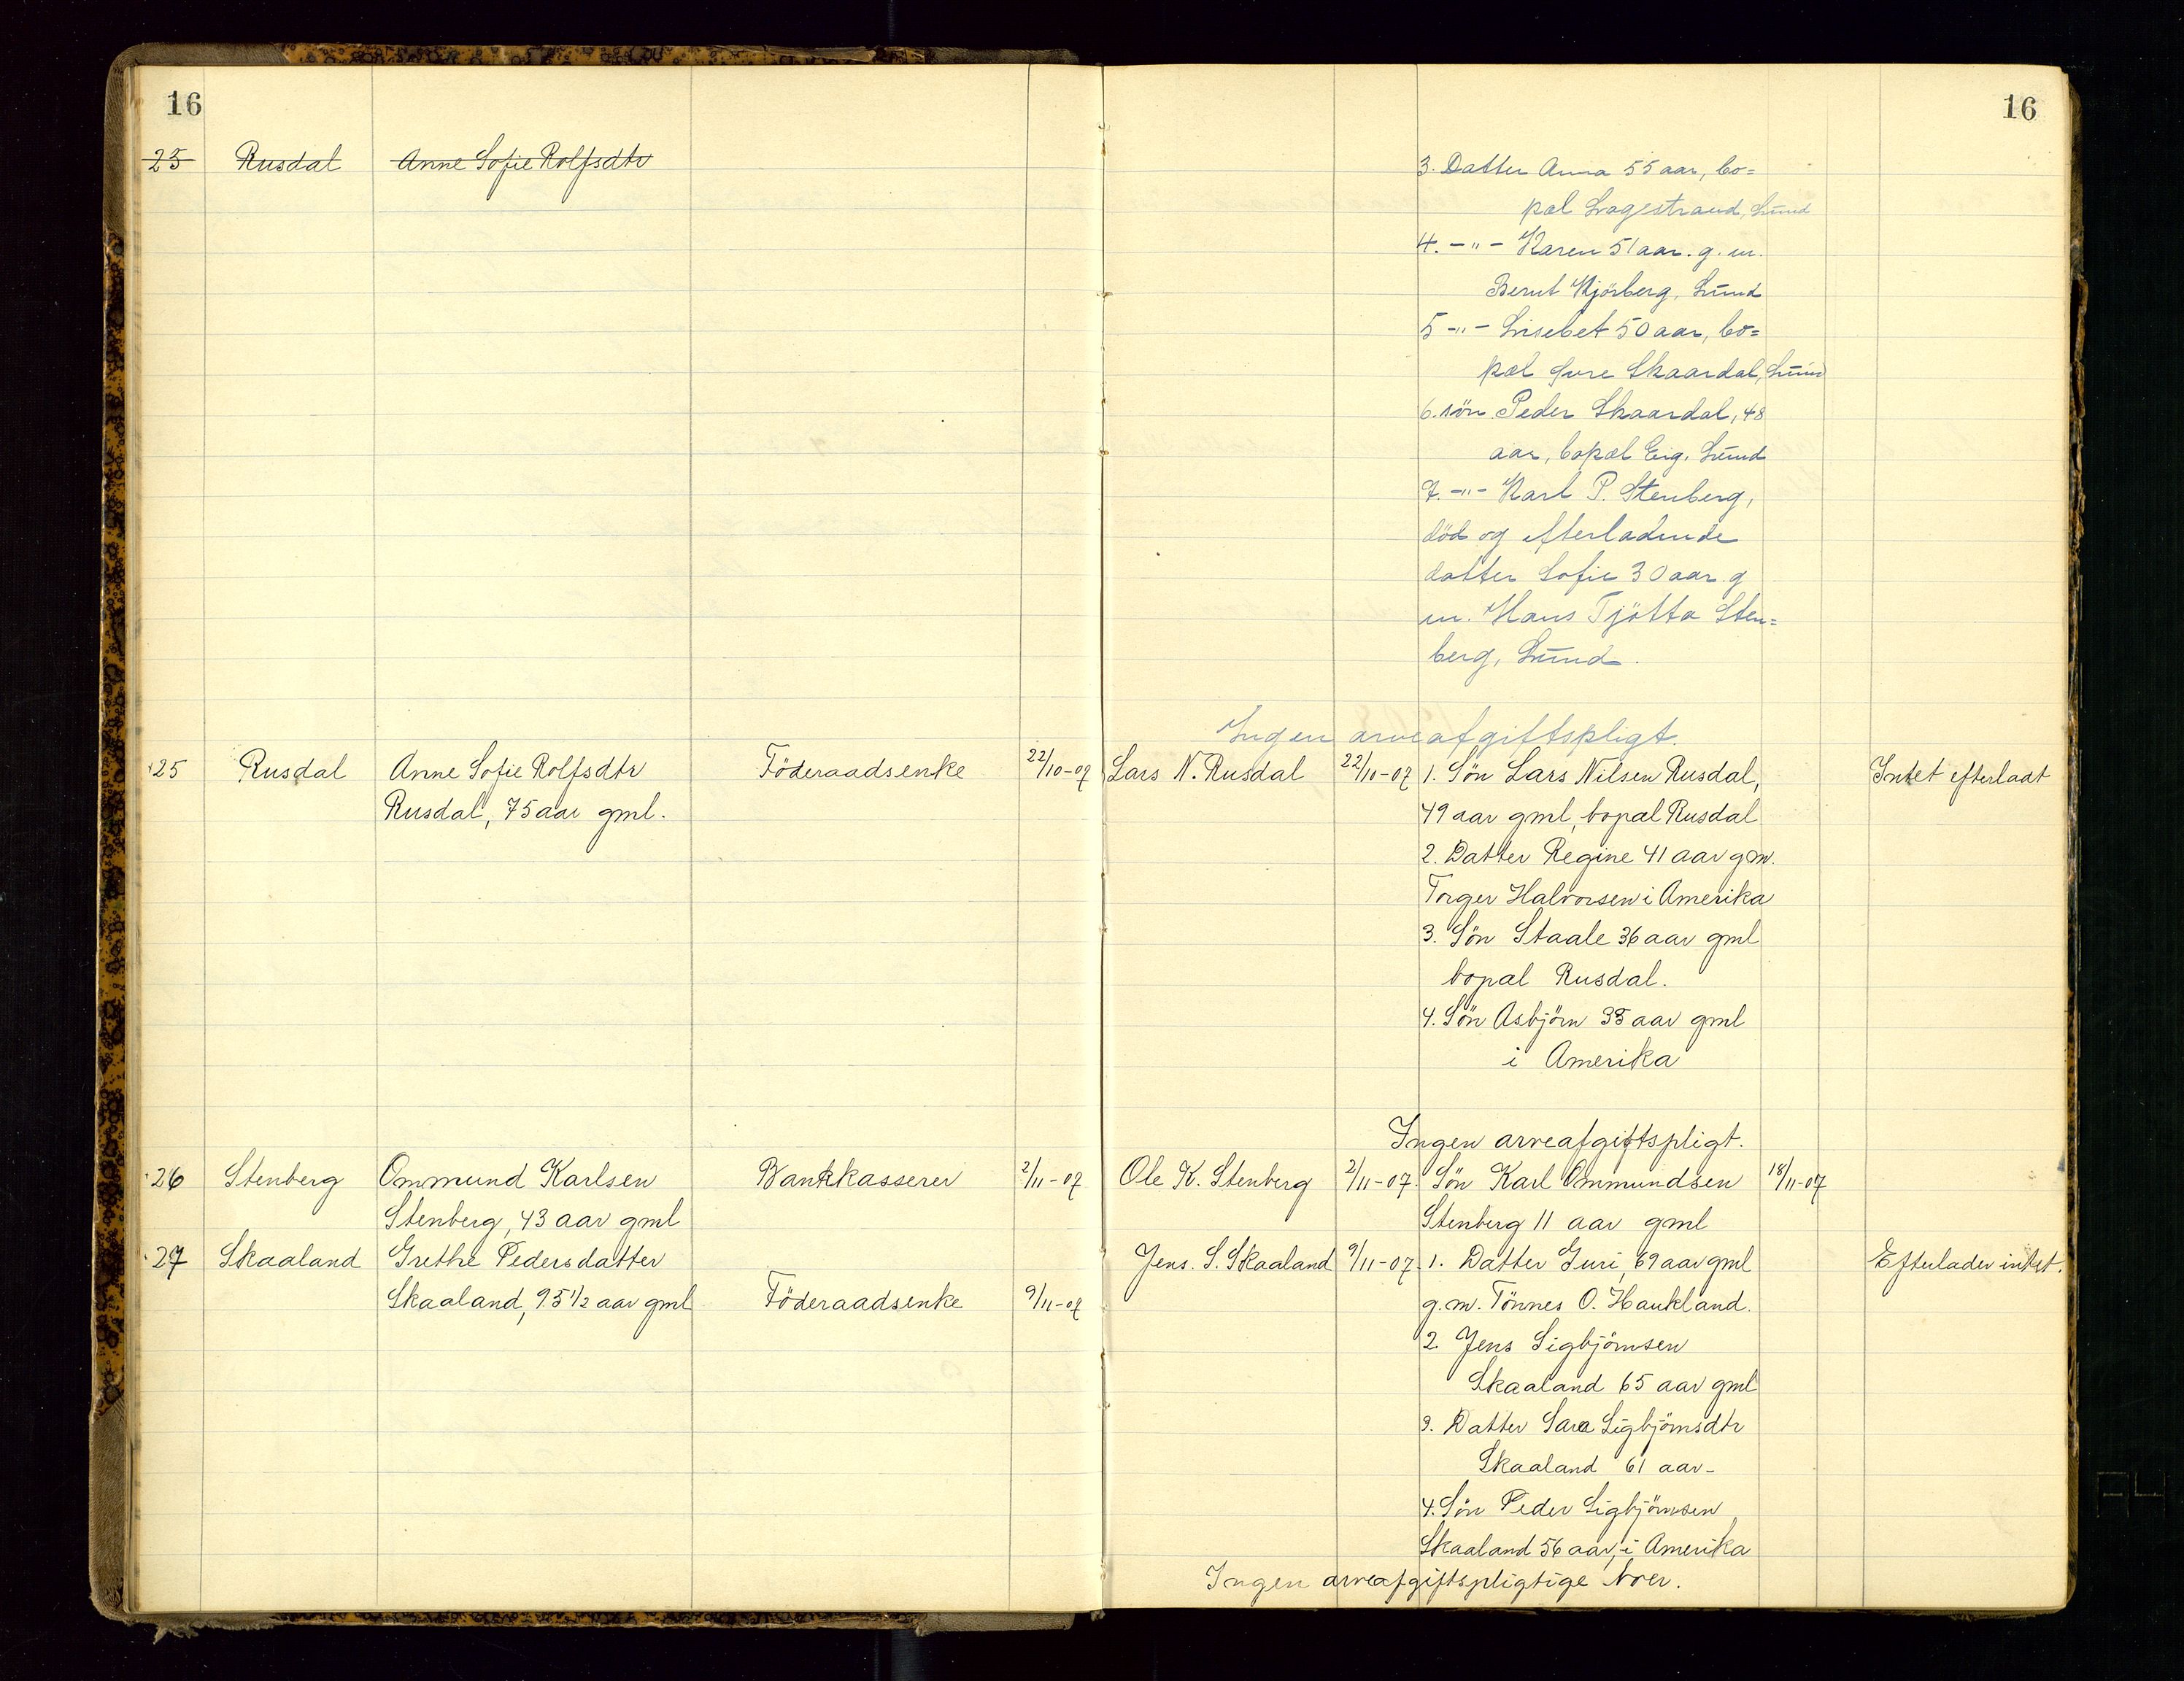 16
16
25 Rusdal Anne Sofie Rolfsdtr
3. Datter Anna 55 aar, bo=
pæl Lragestrand, Lund
4. -"- Karen 51 aar. g. m.
Berut Kjörberg, Lund
5 -"- Lisebet 50 aar, bo=
pæl Skaardal, Lund
6. sön Peder Skaardal, 48
aar, bopæl Eig, Lund
7. -"- Karl P. Stenberg,
död og efterladende
datter Sofie 30 aar g
m. Hans Tjötta Sten=
berg, Lund.
Ingen arveafgiftspligt.
25 Rusdal Anne Sofie Rolfsdtr Föderaadsenke 22/10-07 Lars N. Rusdal 22/10-07 1. Sön Lars Nilsen Rusdal, Intet efterladt
Rusdal, 75 aar gml. 49 aar gml, bopal Rusdal
2. Datter Regine 41 aar gm.
Torger Halvorsen i Amerika
3. Sön Staale 36 aar gml
bopal Rusdal.
4. Sön Asbjörn 35 aar gml
i Amerika
Ingen arveafgiftspligt.
26 Stenberg Ommund Karlsen Bankkasserer 2/11-07 Ole K. Stenberg 2/11-07. Sön Karl Ommundsen 18/11-07
Stenberg, 43 aar gml Stenberg 11 aar gml
27 Skaaland Grethe Pedersdatter Jens. S. Skaaland 9/11-07 1. Datter Guri, 69 aar gml Efterlader intet.
Skaaland, 95 1/2 aar gml Föderaadsenke 9/11-07 g.m. Tönnes O. Haukland.
2 Jens Sigbjörnsen
Skaaland 65 aar gml
3. Datter Sara Sigbjörnsdtr
Skaaland 61 aar-
4. Sön Peder Sigbjörnsen
Skaaland 56 aar, i Amerika
Ingen arveafgiftspligtige